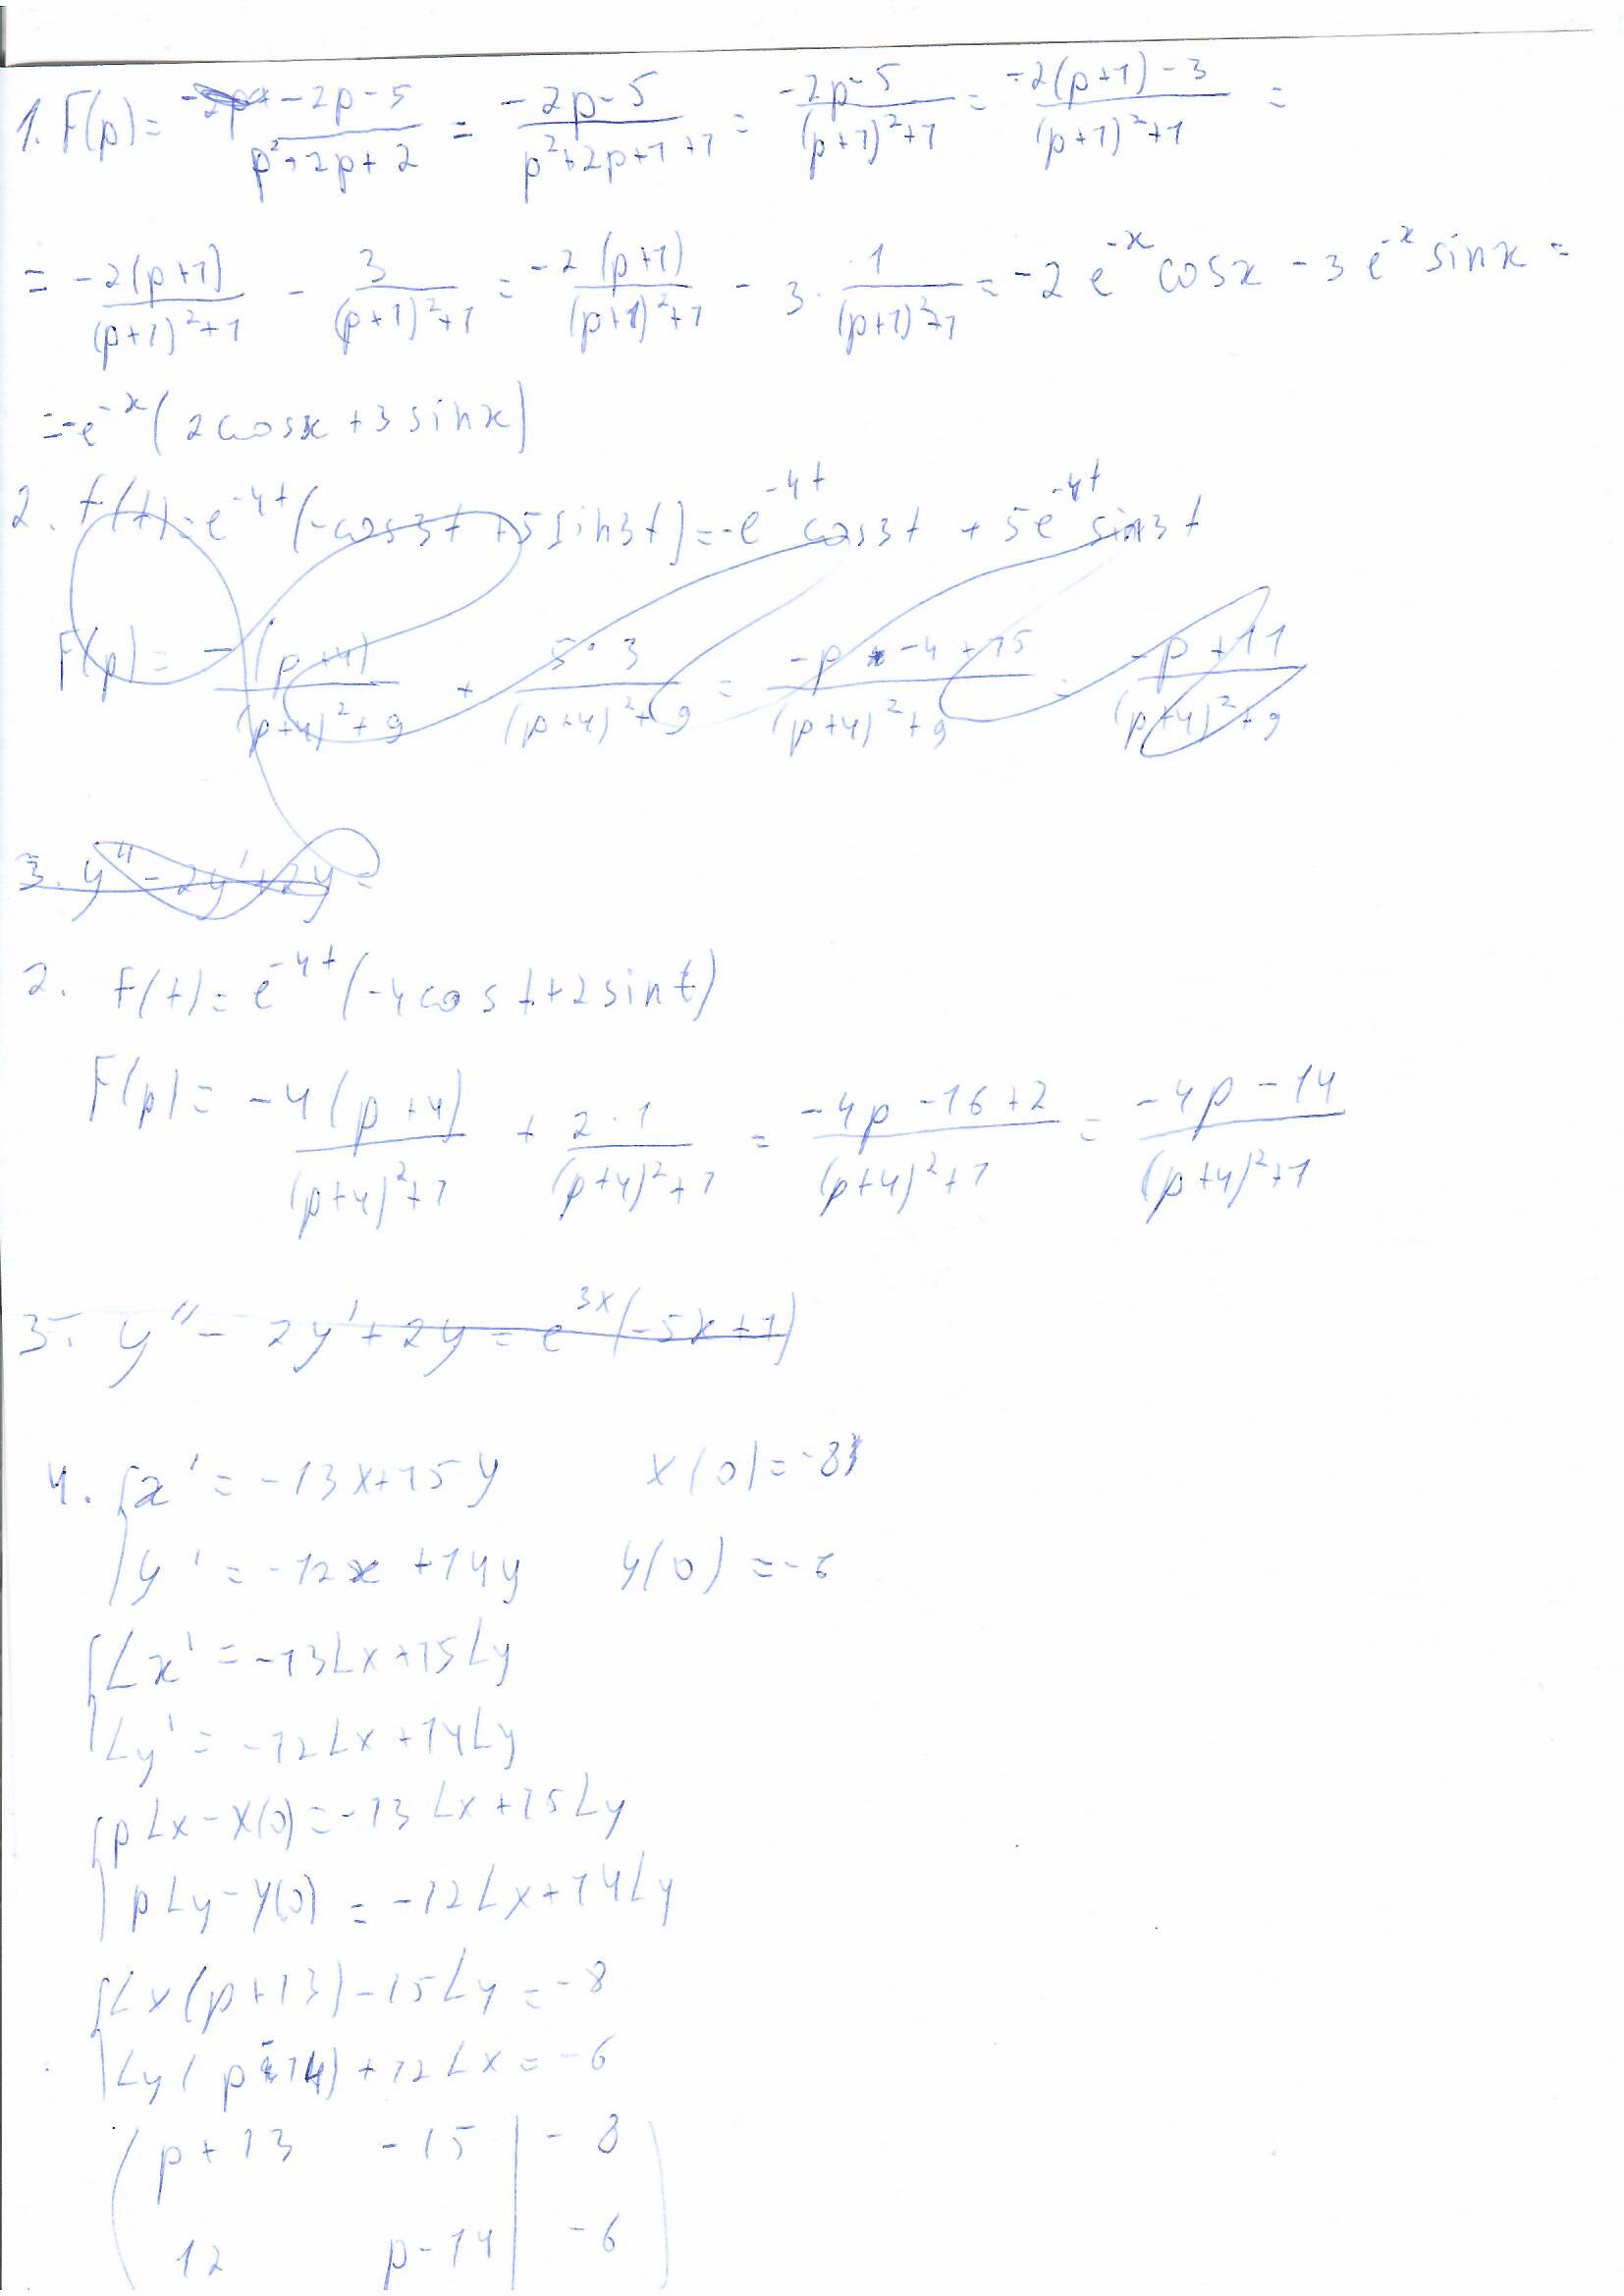 1. F(p) = (-2p-5)/(p²+2p+2) = (-2p-5)/(p²+2p+1+1) = (-2p-5)/((p+1)²+1) = (-2(p+1)-3)/((p+1)²+1) =
= (-2(p+1))/((p+1)²+1) - 3/((p+1)²+1) = (-2(p+1))/((p+1)²+1) - 3·1/((p+1)²+1) = -2e^{-x}cosx - 3e^{-x}sinx =
= -e^{-x}(2cosx+3sinx)
2. f(t) = e^{-4t}(-cos3t+5sin3t) = -e^{-4t}cos3t + 5e^{-4t}sin3t
F(p) = (-(p+4))/((p+4)²+9) + (5·3)/((p+4)²+9) = (-p-4+15)/((p+4)²+9) = (-p+11)/((p+4)²+9)
3. y''-2y'+2y=
2. f(t) = e^{-4t}(-4cost+2sint)
F(p) = (-4(p+4))/((p+4)²+1) + (2·1)/((p+4)²+1) = (-4p-16+2)/((p+4)²+1) = (-4p-14)/((p+4)²+1)
3. y''-2y'+2y = e^{3x}(-5x+1)
4. {x' = -13x+15y x(0)=-8
y' = -12x+14y y(0)=-6
{Lx' = -13Lx+15Ly
Ly' = -12Lx+14Ly
{pLx-x(0) = -13Lx+15Ly
pLy-y(0) = -12Lx+14Ly
{Lx(p+13)-15Ly = -8
Ly(p-14)+12Lx = -6
(p+13 -15 | -8)
12 p-14 | -6